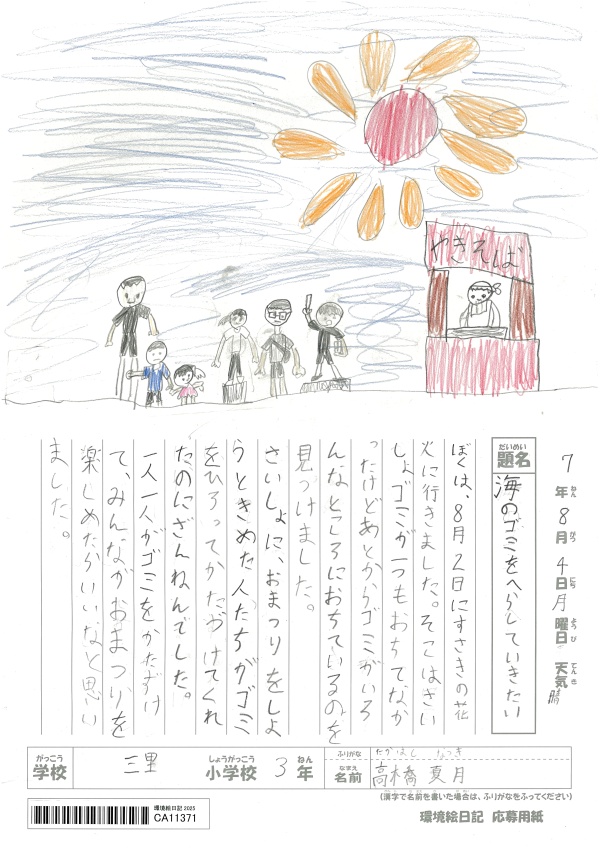 やきそば
7年8月4日月曜日 天気晴
ねん がつ にち ようび てんき
だいめい
題名 海のゴミをへらしていきたい
ぼくは、8月2日にすさきの花
火に行きました。そこはさい
しょゴミが一つもおちてなか
ったけどあとからゴミがいろ
んなところにおちているのを
見つけました。
さいしょに、おまつりをしよ
うときめた人たちがゴミ
をひろってかたづけてくれ
たのにざんねんでした。
一人一人がゴミをかたずけ
て、みんながおまつりを
楽しめたらいいなと思い
ました。
がっこう しょうがっこう ねん
学校 三里 小学校 3年
ふりがな たかはし なつき
なまえ
名前 高橋 真月
(漢字で名前を書いた場合は、ふりがなをふってください)
環境絵日記 2025
CA11371
環境絵日記 応募用紙